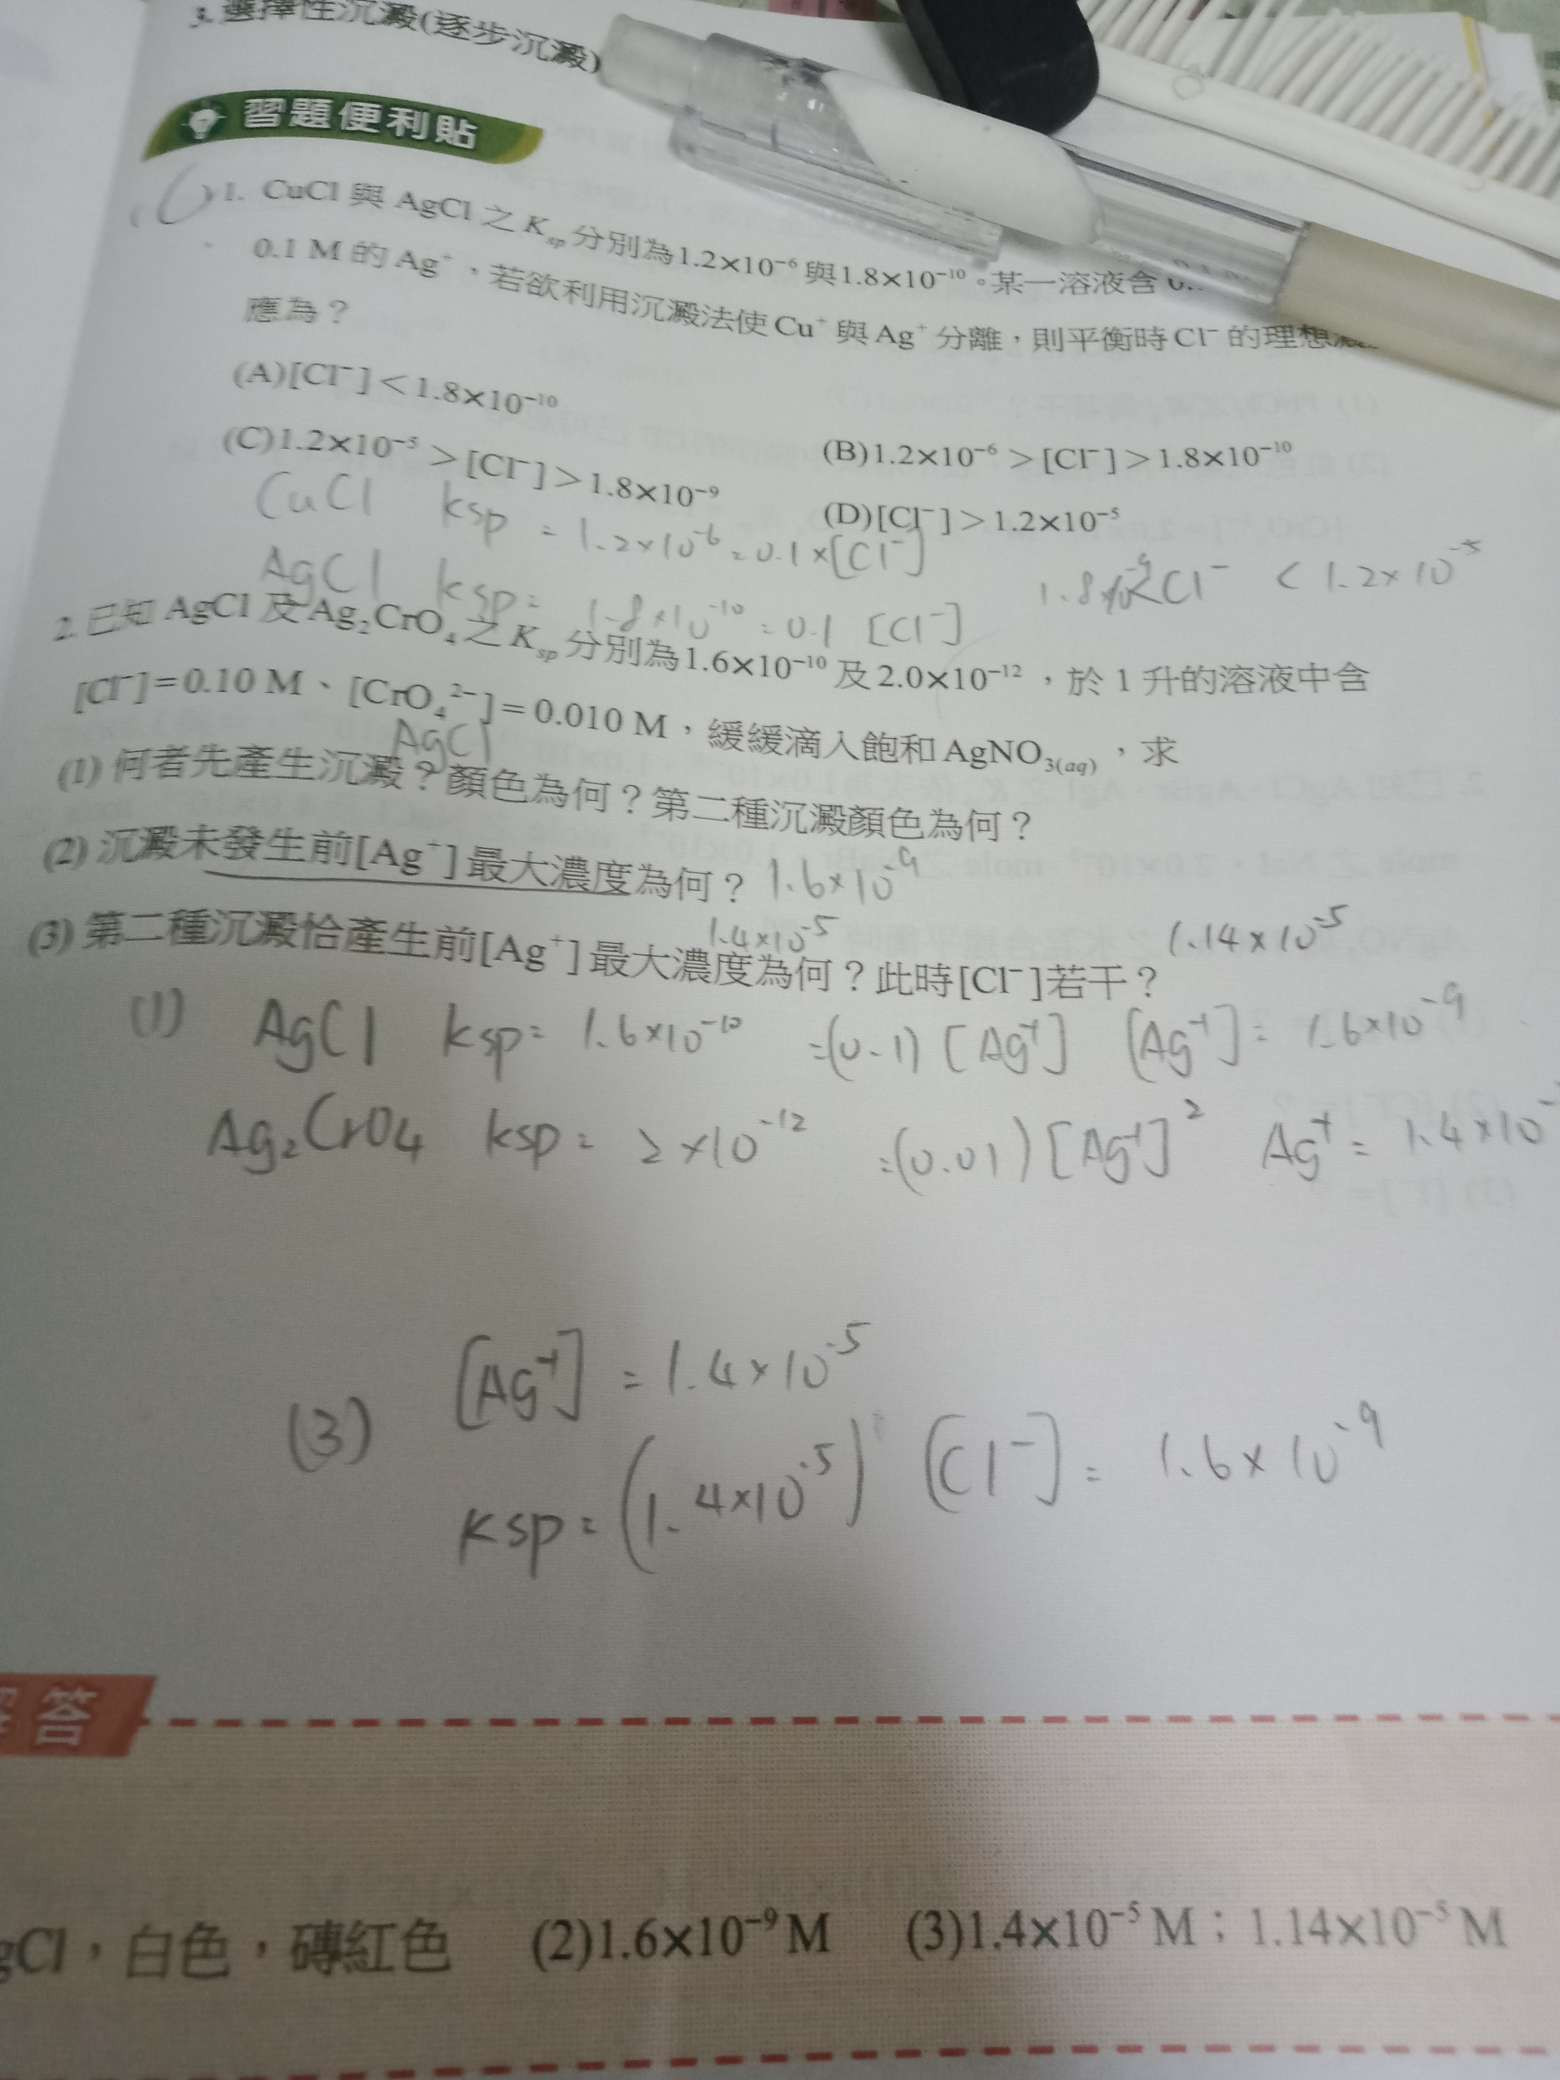 3. 選擇性沉澱(逐步沉澱)
習題便利貼
(C)1. CuCl 與 AgCl 之 Ksp 分別為1.2×10⁻⁶ 與1.8×10⁻¹⁰。某一溶液含 0.
0.1 M 的 Ag⁺，若欲利用沉澱法使 Cu⁺ 與 Ag⁺ 分離，則平衡時 Cl⁻ 的理想
應為？
(A)[Cl⁻]＜1.8×10⁻¹⁰
(B)1.2×10⁻⁶＞[Cl⁻]＞1.8×10⁻¹⁰
(C)1.2×10⁻⁵＞[Cl⁻]＞1.8×10⁻⁹
(D)[Cl⁻]＞1.2×10⁻⁵
CuCl ksp = 1.2×10⁻⁶ = 0.1×[Cl⁻]
AgCl ksp = 1.8×10⁻¹⁰ = 0.1 [Cl⁻]
Cl⁻ < 1.2×10⁻⁵
2. 已知 AgCl 及 Ag₂CrO₄ 之 Ksp 分別為1.6×10⁻¹⁰ 及 2.0×10⁻¹²，於 1 升的溶液中含
[Cl⁻]＝0.10 M、[CrO₄²⁻]＝0.010 M，緩緩滴入飽和 AgNO₃(aq)，求
AgCl
(1) 何者先產生沉澱？顏色為何？第二種沉澱顏色為何？
(2) 沉澱未發生前[Ag⁺]最大濃度為何？ 1.6×10⁻⁹
1.4×10⁻⁵ 1.14×10⁻⁵
(3) 第二種沉澱恰產生前[Ag⁺]最大濃度為何？此時[Cl⁻]若干？
(1) AgCl ksp = 1.6×10⁻¹⁰ =(0.1) [Ag⁺] [Ag⁺] = 1.6×10⁻⁹
Ag₂CrO₄ ksp = 2×10⁻¹² =(0.01) [Ag⁺]² Ag⁺ = 1.4×10⁻
[Ag⁺] = 1.4×10⁻⁵
(3)
ksp = (1.4×10⁻⁵) [Cl⁻] = 1.6×10⁻⁹
解答
gCl，白色，磚紅色 (2)1.6×10⁻⁹ M (3)1.4×10⁻⁵ M；1.14×10⁻⁵ M